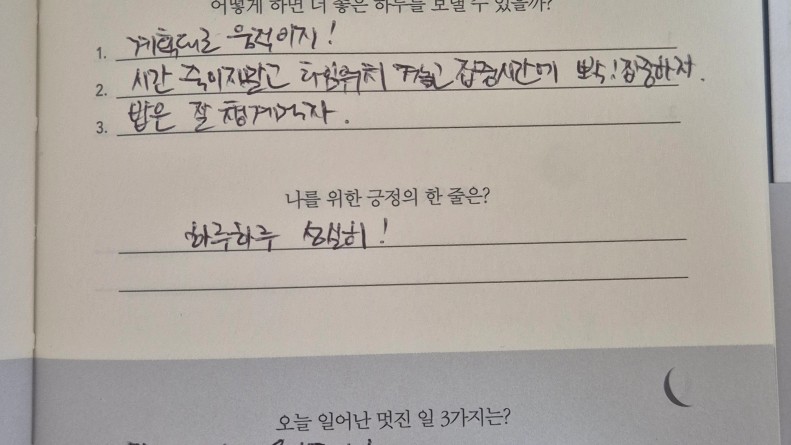 어떻게 하면 더 좋은 하루를 보낼 수 있을까?
1. 계획대로 움직이자!
2. 시간 죽이지말고 타임워치 켜놓고 집중시간에 빡!집중하자.
3. 밥은 잘 챙겨먹자.
나를 위한 긍정의 한 줄은?
하루하루 성실히!
오늘 일어난 멋진 일 3가지는?